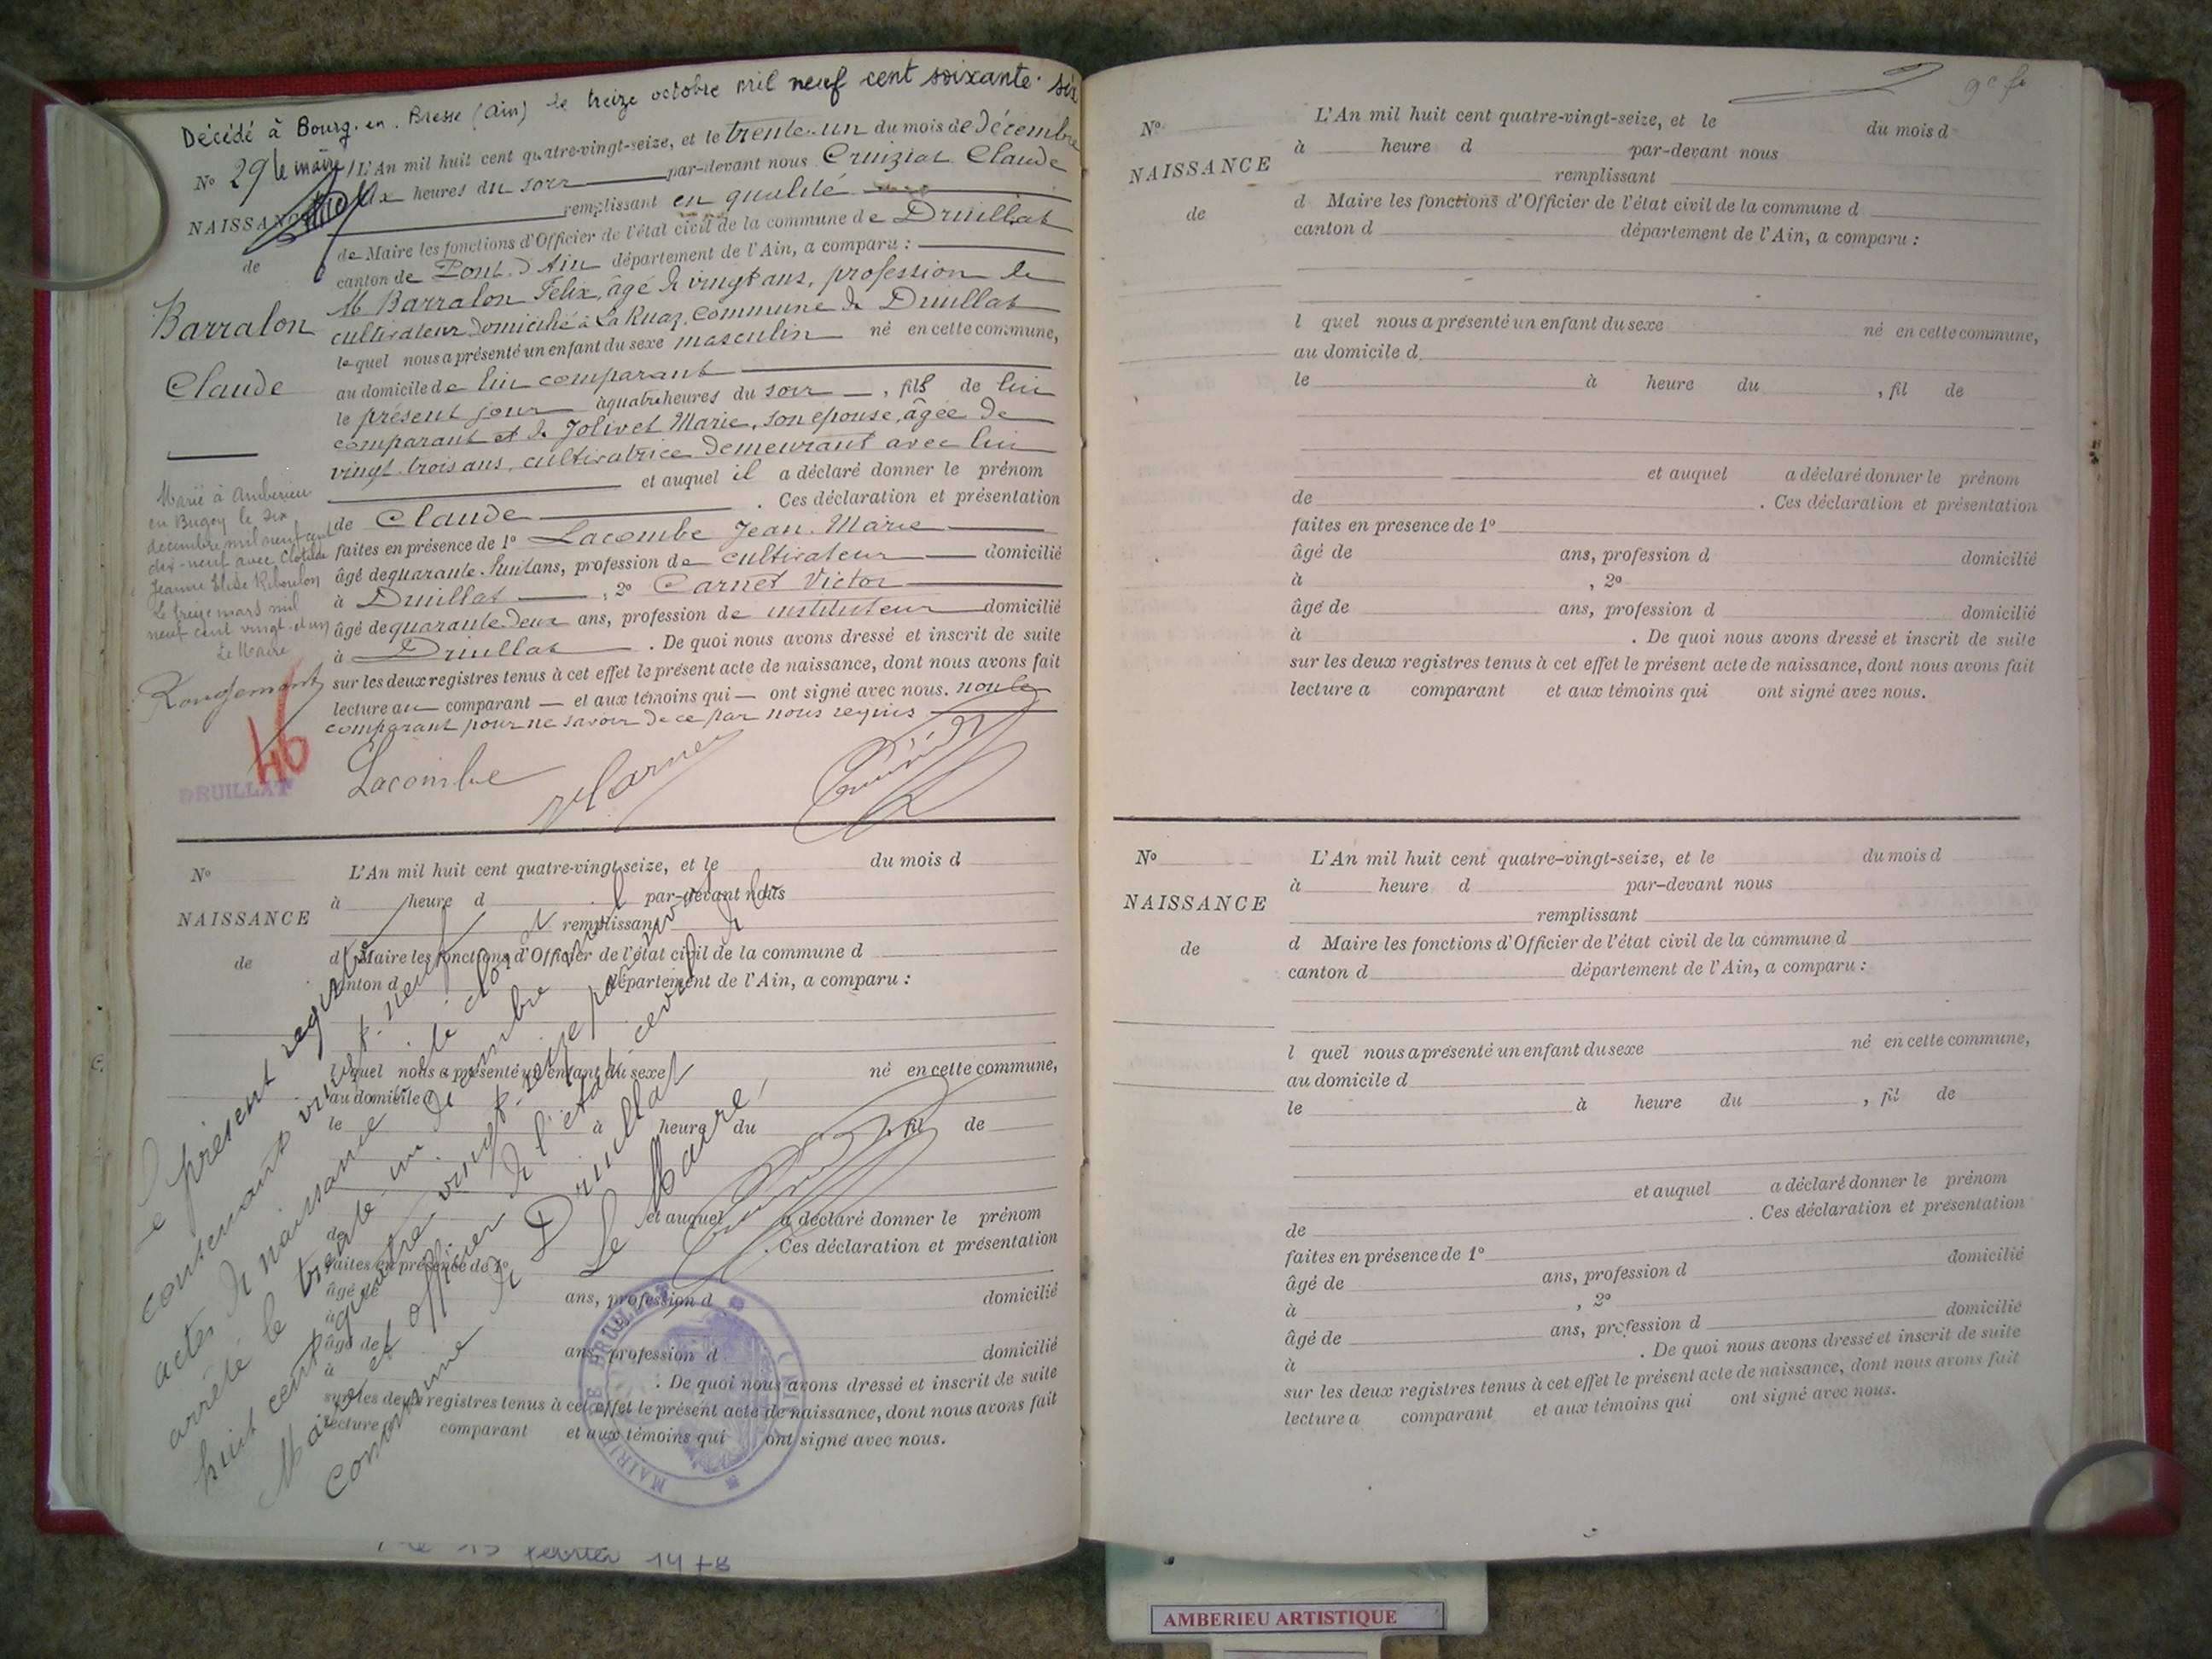 Décédé à Bourg-en-Bresse (Ain) le treize octobre mil neuf cent soixante-six
le maire
No 29
NAISSANCE
de
Barralon
Claude
L'An mil huit cent quatre-vingt-seize, et le trente-un du mois de décembre
heures du soir par-devant nous Cruiziat Claude
remplissant en qualité
de Maire les fonctions d'Officier de l'état civil de la commune de Druillat
canton de Pont-d'Ain département de l'Ain, a comparu :
M Barralon Felix, âgé de vingt ans, profession de
cultivateur domicilié à La Ruaz, commune de Druillat
lequel nous a présenté un enfant du sexe masculin né en cette commune,
au domicile de lui comparant
le présent jour à quatre heures du soir, fils de lui
comparant et de Jolivet Marie, son épouse, âgée de
vingt-trois ans, cultivatrice demeurant avec lui
et auquel il a déclaré donner le prénom
de Claude. Ces déclaration et présentation
faites en présence de 1o Lacombe Jean-Marie
âgé de quarante-huit ans, profession de cultivateur domicilié
à Druillat, 2o Carnet Victor
âgé de quarante-deux ans, profession de instituteur domicilié
à Druillat. De quoi nous avons dressé et inscrit de suite
sur les deux registres tenus à cet effet le présent acte de naissance, dont nous avons fait
lecture au comparant et aux témoins qui ont signé avec nous. non le
comparant pour ne savoir de ce par nous requis
Lacombe
Marié à Ambérieu
en Bugey le six
décembre mil neuf cent
dix-neuf avec Clotilde
Jeanne Elise Riboulon
Le treize mars mil
neuf cent vingt-et-un
Le Maire
Rougemont
46
DRUILLAT
No
NAISSANCE
de
L'An mil huit cent quatre-vingt-seize, et le du mois d
à heure d par-devant nous
remplissant
d Maire les fonctions d'Officier de l'état civil de la commune d
canton d département de l'Ain, a comparu :
l quel nous a présenté un enfant du sexe né en cette commune,
au domicile d
le à heure du , fil de
et auquel a déclaré donner le prénom
de . Ces déclaration et présentation
faites en présence de 1o
âgé de ans, profession d domicilié
à
âgé de ans, profession d domicilié
à . De quoi nous avons dressé et inscrit de suite
sur les deux registres tenus à cet effet le présent acte de naissance, dont nous avons fait
lecture a comparant et aux témoins qui ont signé avec nous.
Le présent registre
contenant vingt-neuf
actes de naissance a été clos et
arrêté le trente-un décembre mil
huit cent quatre-vingt-seize par nous
Maire et officier de l'état civil de la
commune de Druillat
Le Maire,
MAIRIE DE DRUILLAT (AIN)
No
NAISSANCE
de
L'An mil huit cent quatre-vingt-seize, et le du mois d
à heure d par-devant nous
remplissant
d Maire les fonctions d'Officier de l'état civil de la commune d
canton d département de l'Ain, a comparu :
l quel nous a présenté un enfant du sexe né en cette commune,
au domicile d
le à heure du , fil de
et auquel a déclaré donner le prénom
de . Ces déclaration et présentation
faites en présence de 1o
âgé de ans, profession d domicilié
à , 2o
âgé de ans, profession d domicilié
à . De quoi nous avons dressé et inscrit de suite
sur les deux registres tenus à cet effet le présent acte de naissance, dont nous avons fait
lecture a comparant et aux témoins qui ont signé avec nous.
No
NAISSANCE
de
L'An mil huit cent quatre-vingt-seize, et le du mois d
à heure d par-devant nous
remplissant
d Maire les fonctions d'Officier de l'état civil de la commune d
canton d département de l'Ain, a comparu :
l quel nous a présenté un enfant du sexe né en cette commune,
au domicile d
le à heure du , fil de
et auquel a déclaré donner le prénom
de . Ces déclaration et présentation
faites en présence de 1o
âgé de ans, profession d domicilié
à , 2o
âgé de ans, profession d domicilié
à . De quoi nous avons dressé et inscrit de suite
sur les deux registres tenus à cet effet le présent acte de naissance, dont nous avons fait
lecture a comparant et aux témoins qui ont signé avec nous.
AMBERIEU ARTISTIQUE